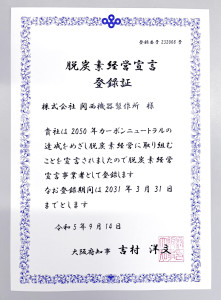 登録番号 232068 号
脱炭素経営宣言
登録証
株式会社 関西機器製作所 様
貴社は2050年カーボンニュートラルの
達成をめざし脱炭素経営に取り組む
ことを宣言されましたので脱炭素経営
宣言事業者として登録します
なお登録期間は2031年3月31日
までとします
令和5年9月14日
大阪府知事 吉村 洋文